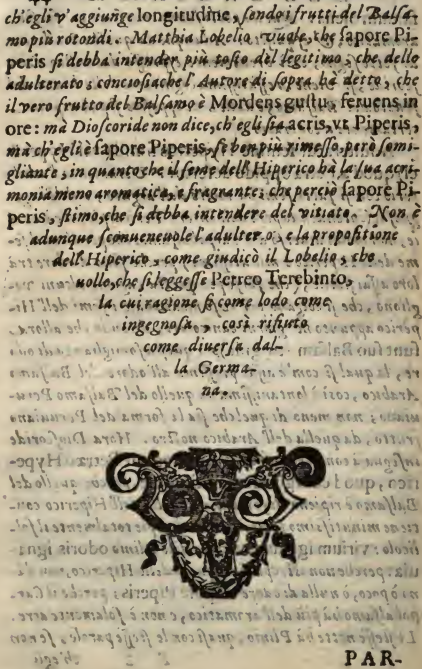 ch'egli v'aggiunge longitudine, sendo i frutti del Balsa-
mo più rotondi. Matthia Lobelio vuole, che sapore Pi-
peris si debba intender più tosto del legitimo, che dello
adulterato; conciosiache l'Autore di sopra hà detto, che
il vero frutto del Balsamo è Mordens gustu, feruens in
ore: mà Dioscoride non dice, ch'egli sia acris, vt Piperis,
mà ch'egli è sapore Piperis, se ben più rimesso, però somi-
gliante, in quanto che il seme dell'Hiperico hà la sua acri-
monia meno aromatica, e fragrante; che perciò sapore Pi-
peris, stimo, che si debba intendere del vitiato. Non è
adunque sconueneuole l'adulter o, e la propositione
dell'Hiperico, come giudicò il Lobelio, che
uollo, che si leggesse Petreo Terebinto,
la cui ragione sì come lodo come
ingegnosa, così rifiuto
come diuersa dal-
la Germa-
na.
PAR-